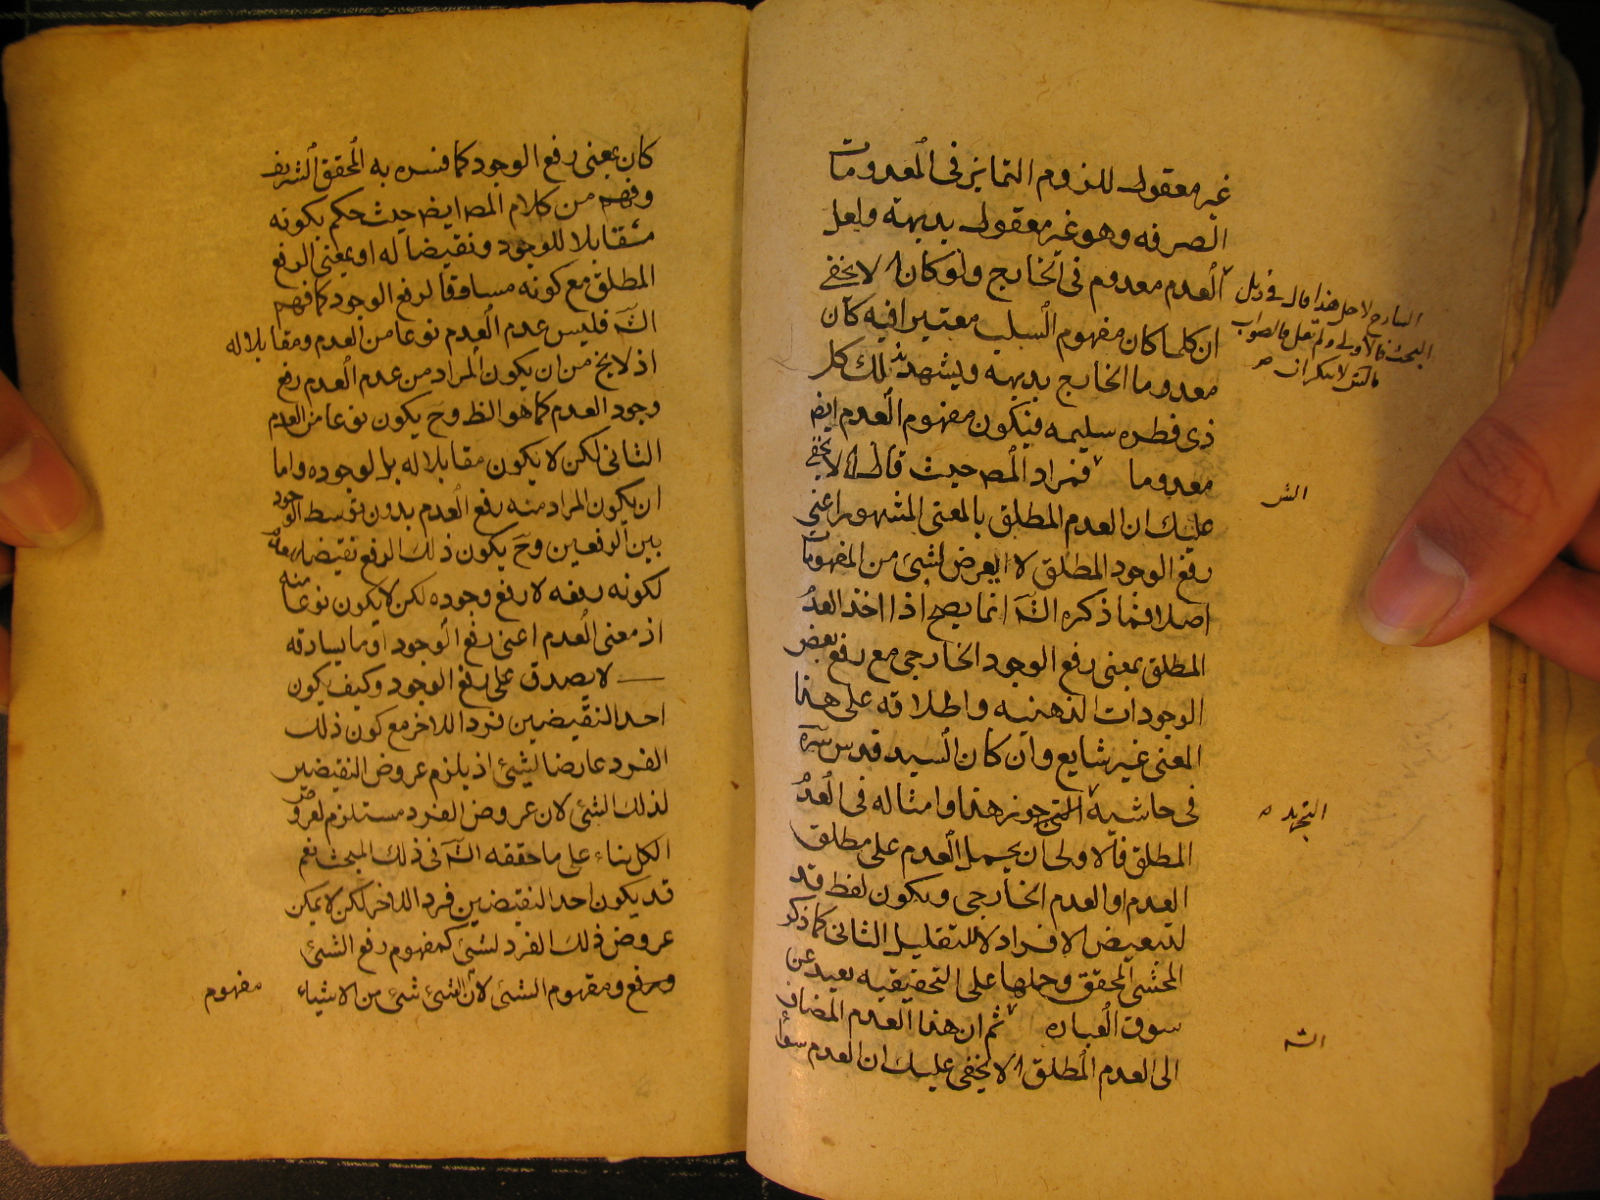 غير معقول للزوم التمايز فى المعدومات
الصرفه وهو غير معقول بديهة ولعل
العدم معدوم فى الخارج ولو كان الا يخفى
ان كلما كان مفهوم السلب معتبرا فيه كان
معدوما الخارج بديهه ويشهد بذلك كل
ذى فطره سليمه فيكون مفهوم العدم ايضا
معدوما فمراد المصـ حيث قال الا يخفى
عليك ان العدم المطلق بالمعنى المشهور اعنى
رفع الوجود المطلق لا يعرض لشئ من المفهومات
اصلا فما ذكره الشـ انما يصح اذا اخذ العدم
المطلق بمعنى رفع الوجود الخارجى مع رفع بعض
الوجودات الذهنيه واطلاقه على هذا
المعنى غير شايع وان كان السيد قدس سره
فى حاشية التـ جوز هذا وامثاله فى العدم
المطلق فالاولى ان يحمل العدم على مطلق
العدم او العدم الخارجى ويكون لفظ قد
لتبعيض الافراد لا للتقليل الثانى كما ذكر
المحشى المحقق وحملها على التحقيقيه بعيد عن
سوق العباره ثم ان هذا العدم المضاف
الى العدم المطلق الا يخفى عليك ان العدم سواء
الشارح لاجل هذا قال فى ذيل
البحث فالاولى ولم يقل فالصواب
الشـ
التجريد
الشـ
كان بمعنى رفع الوجود كما فسره به المحقق الشريف
وفهم من كلام المصـ ايضـ حيث حكم بكونه
مقابلا للوجود ونقيضا له او بمعنى الرفع
المطلق مع كونه مساوقا لرفع الوجود كما فهم
الشـ فليس عدم العدم نوعا من العدم ومقابلا له
اذ لا يخ من ان يكون المراد من عدم العدم رفع
وجود العدم كما هو الظ وح يكون نوعا من العدم
الثانى لكن لا يكون مقابلا له بل لوجوده واما
ان يكون المراد منه رفع العدم بدون توسط الوجود
بين الرفعين وح يكون ذلك الرفع نقيضا
لكونه رفعه لا رفع وجوده لكن لا يكون نوعا منه
اذ معنى العدم اعنى رفع الوجود او ما يساوقه
لا يصدق على رفع الوجود وكيف يكون
احد النقيضين فردا للاخر مع كون ذلك
الفرد عارضا لشئ اذ يلزم عروض النقيضين
لذلك الشئ لان عروض الفرد مستلزم لعروض
الكل بناء على ما حققه الشـ فى ذلك المبحث نعم
قد يكون احد النقيضين فردا للاخر لكن لا يمكن
عروض ذلك الفرد لشئ كمفهوم رفع الشئ
ورفع ومفهوم الشئ لان الشئ شئ من الاشياء
مفهوم